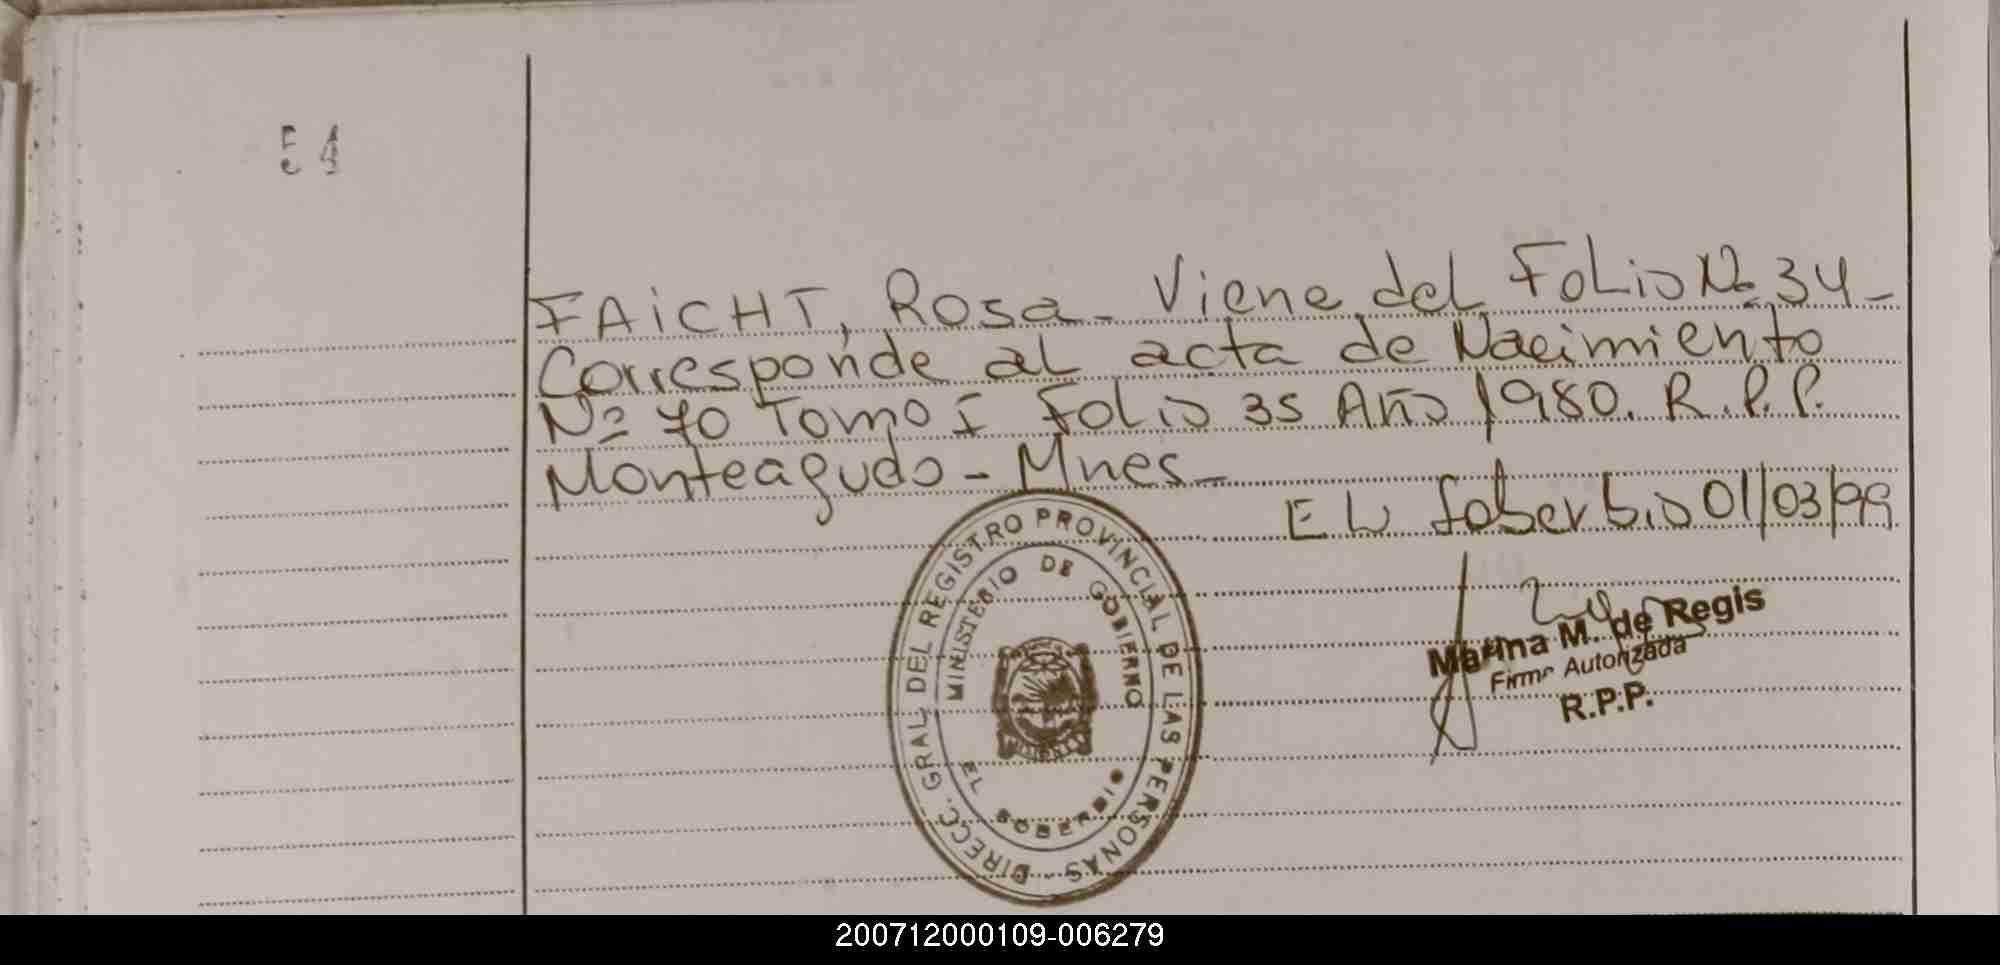 51
FAiCHT, Rosa - Viene del Folio Nº 34 -
Corresponde al acta de Nacimiento
Nº 70 Tomo I Folio 35 Año 1980. R.P.P.
Monteagudo - Mnes -
EL Soberbio 01/03/99
DIRECC. GRAL. DEL REGISTRO PROVINCIAL DE LAS PERSONAS -
MINISTERIO DE GOBIERNO
EL SOBERBIO
Marina M. de Regis
Firma Autorizada
R.P.P.
200712000109-006279